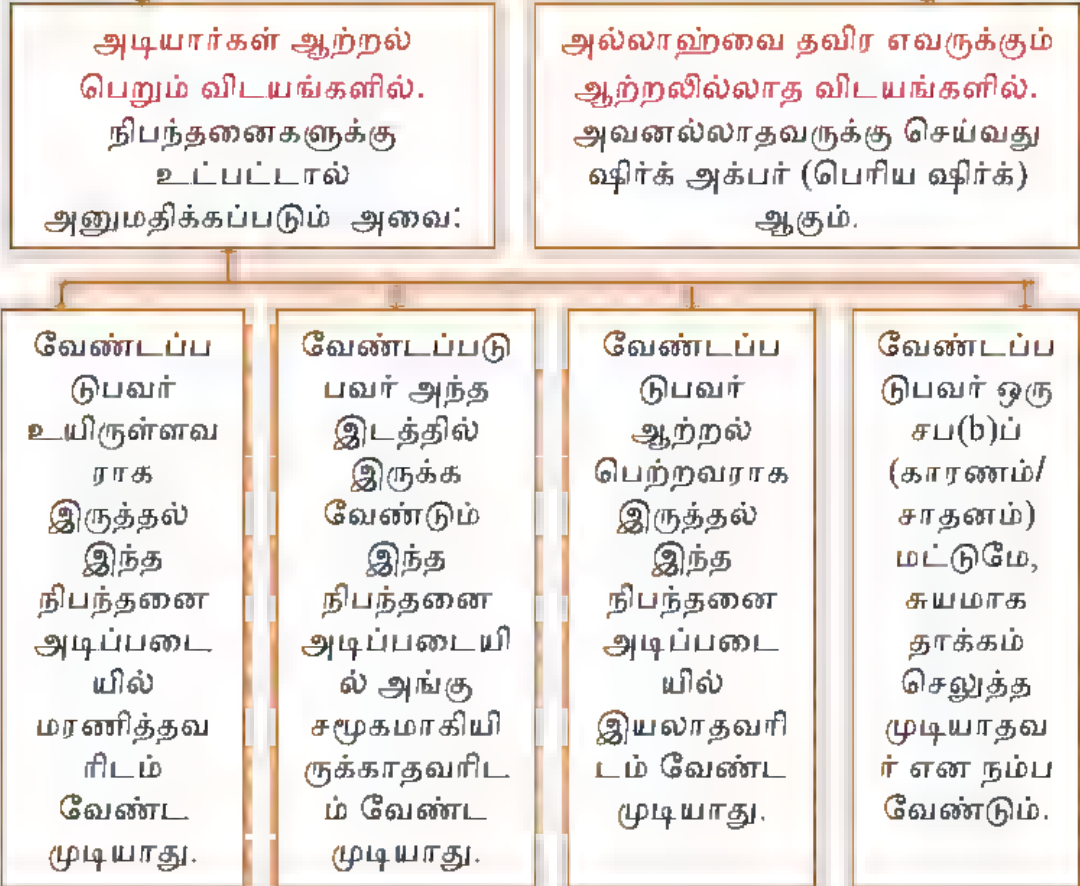 அடியார்கள் ஆற்றல்
பெறும் விடயங்களில்.
நிபந்தனைகளுக்கு
உட்பட்டால்
அனுமதிக்கப்படும் அவை:
அல்லாஹ்வை தவிர எவருக்கும்
ஆற்றலில்லாத விடயங்களில்.
அவனல்லாதவருக்கு செய்வது
ஷிர்க் அக்பர் (பெரிய ஷிர்க்)
ஆகும்.
வேண்டப்ப
டுபவர்
உயிருள்ளவ
ராக
இருத்தல்
இந்த
நிபந்தனை
அடிப்படை
யில்
மரணித்தவ
ரிடம்
வேண்ட
முடியாது.
வேண்டப்படு
பவர் அந்த
இடத்தில்
இருக்க
வேண்டும்
இந்த
நிபந்தனை
அடிப்படையி
ல் அங்கு
சமூகமாகியி
ருக்காதவரிட
ம் வேண்ட
முடியாது.
வேண்டப்ப
டுபவர்
ஆற்றல்
பெற்றவராக
இருத்தல்
இந்த
நிபந்தனை
அடிப்படை
யில்
இயலாதவரி
டம் வேண்ட
முடியாது.
வேண்டப்ப
டுபவர் ஒரு
சப(b)ப்
(காரணம்/
சாதனம்)
மட்டுமே,
சுயமாக
தாக்கம்
செலுத்த
முடியாதவ
ர் என நம்ப
வேண்டும்.